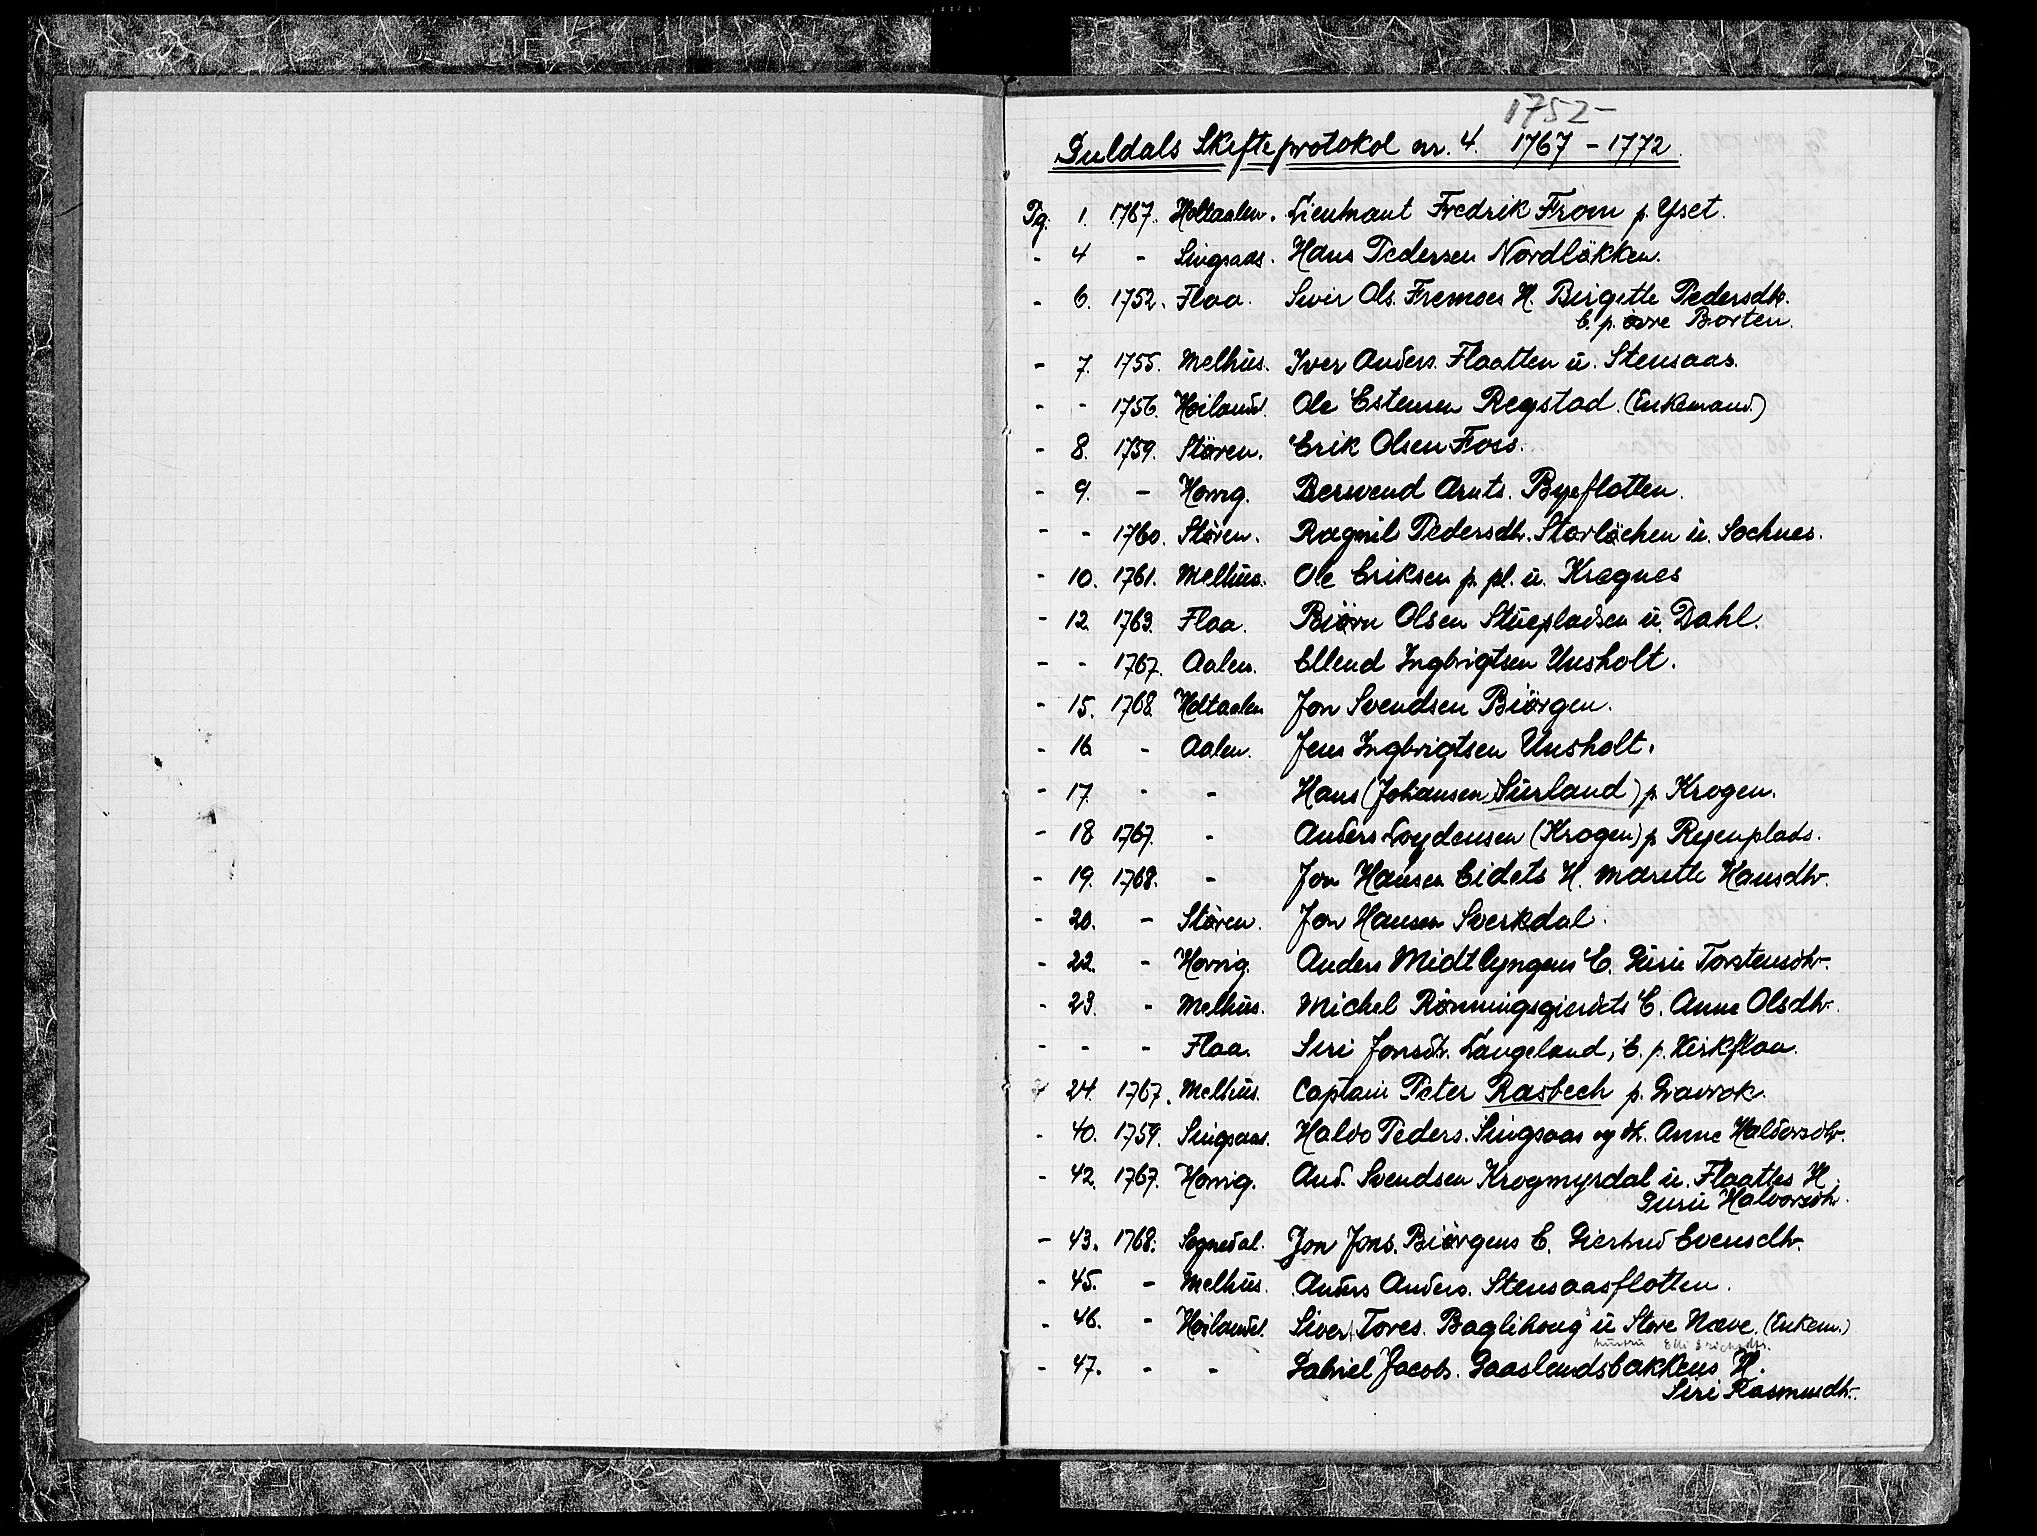 1752-
Guldals Skifteprotokol nr. 4. 1767 - 1772
Pg. 1. 1767. Holtaalen. Lieutnant Fredrik From p. Yset.
- 4 - Singsaas. Hans Pedersen Nordløkken.
- 6. 1752. Flaa. Sivir Ols. Fremoes H. Birgitte Pedersdtr.
E. p. øvre Borten.
- 7. 1755. Melhus. Iver Anders. Flaatten u. Stensaas.
- - 1756. Høilandet. Ole Estensen Regstad. (Enkemand)
- 8. 1759. Støren. Erik Olsen Foss.
- 9. - Horrig. Berwend Arnts. Byeflotten.
- - 1760. Støren. Ragnil Pedersdtr. Storløchen u. Sochnes.
- 10. 1761. Melhus. Ole Eriksen p. pl. u. Kregnes
- 12. 1763. Flaa. Biørn Olsen Stuepladsen u. Dahl.
- - 1767. Aalen. Ellend Ingbrigtsen Unsholt.
- 15. 1768. Holtaalen Jon Svendsen Biørgen.
- 16 - Aalen. Jens Ingbrigtsen Unsholt.
- 17. - - Hans (Johansen Surland) p. Krogen.
- 18 1767. - Anders Loydensen (Krogen) p Ryenplads.
- 19. 1768. - Jon Hansen Eidets H. Marette Hansdtr.
- 20. - Støren. Jon Hansen Sverkdal.
- 22. - Horrig. Anders Midtlyngens E. Guru Torstensdtr.
- 23. - Melhus. Michel Rønningsgierdets E. Anne Olsdtr.
- - - Flaa. Siri Jonsdtr. Langeland, E. p. Kirkflaa.
- 24. 1767. Melhus. Captain Peter Rasbech p. Gravrok.
- 40. 1759. Singsaas. Haldo Peders. Singsaas og dtr. Anne Haldorsdtr.
- 42. 1767. Horrig. And. Svendsen Krogmyrdal u. Flaattes H.
Guru Halvorsdtr.
- 43. 1768. Sognedal. Jon Jons. Biørgens E. Giertrud Evensdtr.
- 45. - Melhus. Anders Anders. Stensaasflotten.
- 46. - Høilandet. Siver Tores. Baglihoug u Store Næve. (Enkem.)
hustru Eli Erichsdtr.
- 47. - - Gabriel Jacobs. Gaaslandsbakkens H.
Siri Rasmusdtr.